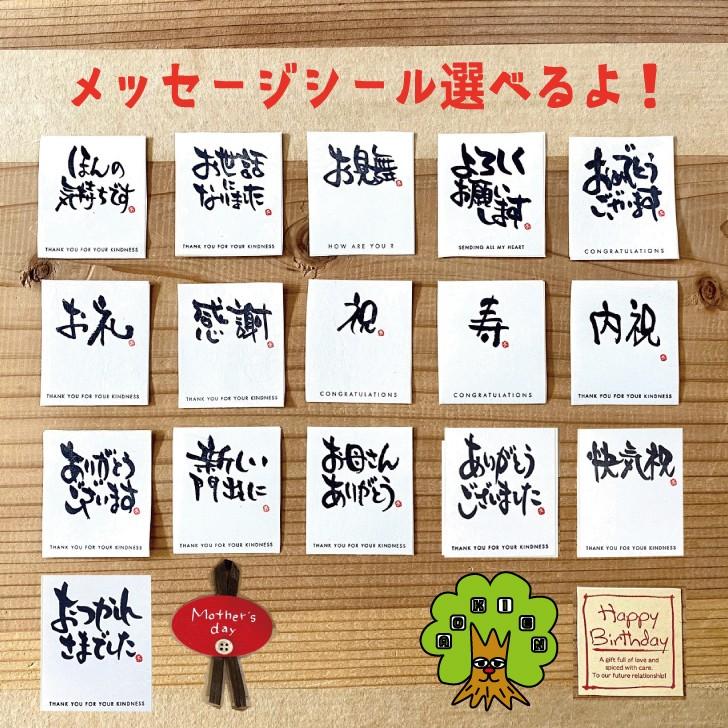 メッセージシール選べるよ！
ほんの
気持ちです
THANK YOU FOR YOUR KINDNESS
お世話
に
なりました
THANK YOU FOR YOUR KINDNESS
お見舞
HOW ARE YOU ?
よろしく
お願い
します
SENDING ALL MY HEART
おめでとう
ございます
CONGRATULATIONS
お礼
THANK YOU FOR YOUR KINDNESS
感謝
THANK YOU FOR YOUR KINDNESS
祝
CONGRATULATIONS
寿
CONGRATULATIONS
内祝
THANK YOU FOR YOUR KINDNESS
ありがとう
ございます
THANK YOU FOR YOUR KINDNESS
新しい
門出に
THANK YOU FOR YOUR KINDNESS
お母さん
ありがとう
THANK YOU FOR YOUR KINDNESS
ありがとう
ございました
THANK YOU FOR YOUR KINDNESS
快気祝
THANK YOU FOR YOUR KINDNESS
おつかれ
さまでした
THANK YOU FOR YOUR KINDNESS
Mother's
day
AOKIEN
Happy
Birthday
A gift full of love and
spiced with care.
To our future relationship!